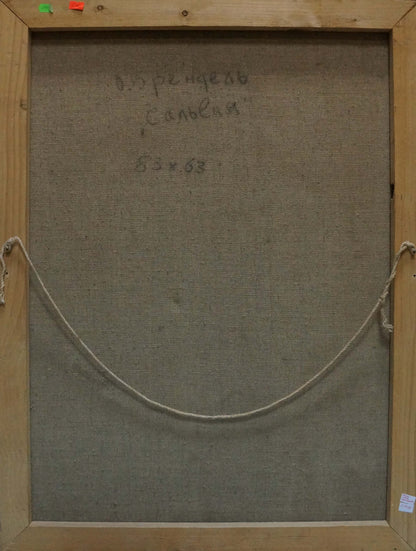 О.Брендель
"Сальвия"
83 х 63